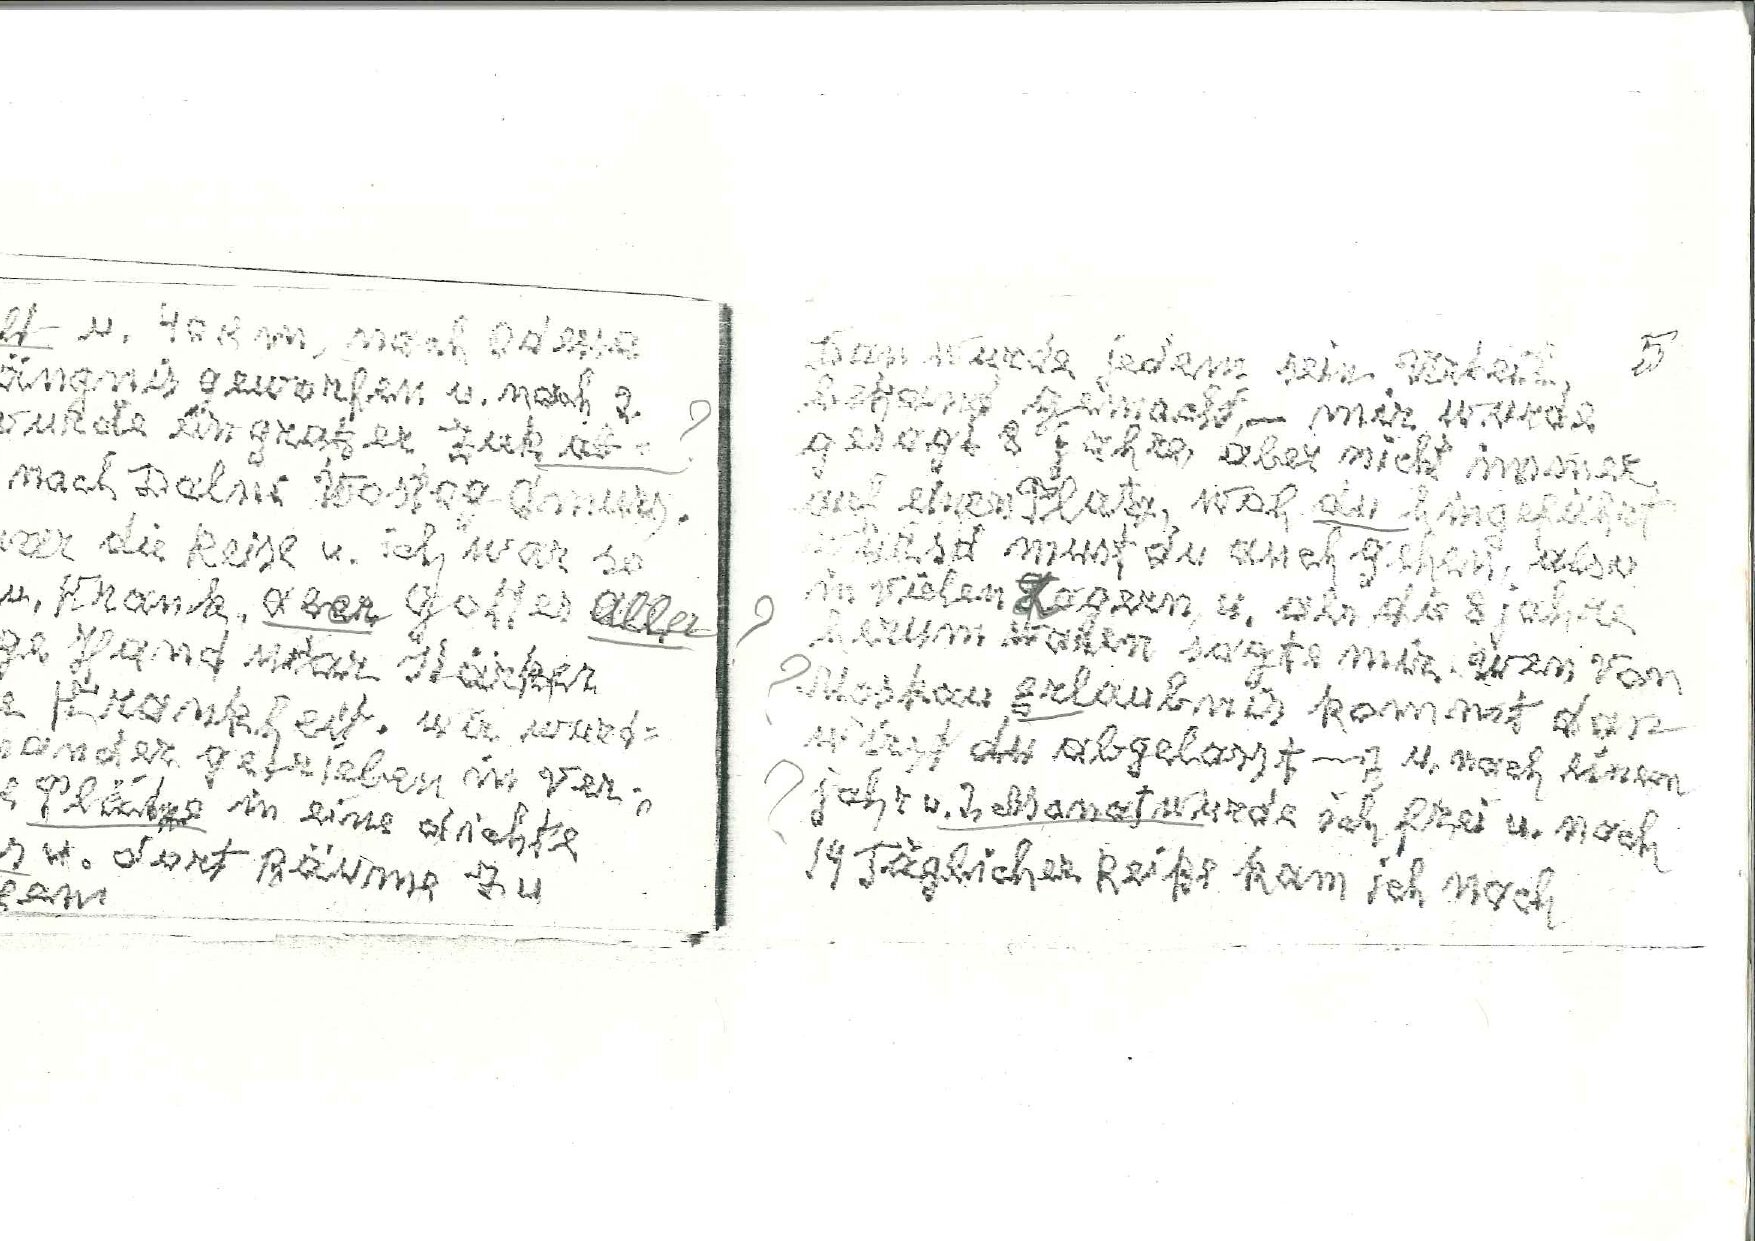 u. 40 km, nach Odessa
ängnis geworfen u. nach 2.
wurde ein graßer Zuk ab= ?
nach Dalni Wostag Amur,.
war die Reise u. ich war so
u, Krank. aber Gottes aller ?
ge Hand war Stärker
e Krankheit. wir wurd=
nander getrieben in Ver=
e Plätze in eine dichte
u. dort Bäume zu
5
Dan wurde jedem sein Urteil,
bekant gemacht, – mir wurde
gesagt 8 Jahre, aber nicht immer
auf einen Platz, woh du hingeführt
wirsd must du auch gehen, also
in vielen Lagern, u. als die 8 jahre
herum waren sagte mir. wen von
? Moskau erlaubnis kommt dan
wirst du abgelasst – u. nach einen
? jahr u. 2 Monat wurde ich frei u. nach
14 Täglicher Reise kam ich nach